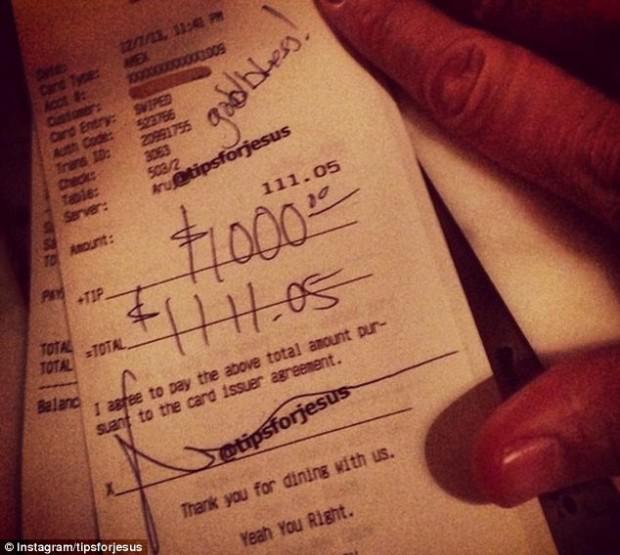 Date: 12/7/13, 11:41 PM
Card Type: AMEX
Acct #: XXXXXXXXXXX1009
Customer:
Card Entry: SWIPED
Auth Code: 523766
Trans ID: 20991755
Check: 3063
Table: 503/2
Server: Aru
godbless!
@tipsforjesus
Amount: 111.05
+TIP $1000.00
=TOTAL $1111.05
I agree to pay the above total amount pur-
suant to the card issuer agreement.
@tipsforjesus
X
Thank you for dining with us.
Yeah You Right.
TOTAL
TOTAL
Balanc
© Instagram/tipsforjesus